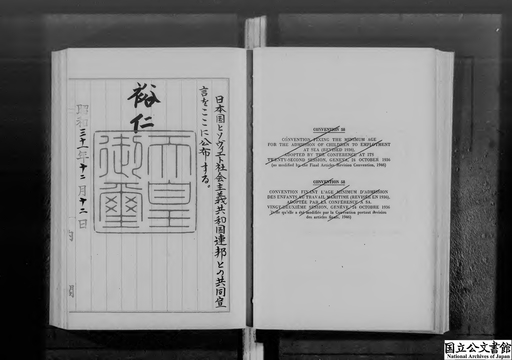 日本国とソヴィエト社会主義共和国連邦との共同宣
言をここに公布する。
裕仁
天皇御璽
昭和三十一年十二月十二日
CONVENTION 58
CONVENTION FIXING THE MINIMUM AGE
FOR THE ADMISSION OF CHILDREN TO EMPLOYMENT
AT SEA (REVISED 1936),
ADOPTED BY THE CONFERENCE AT ITS
TWENTY-SECOND SESSION, GENEVA, 24 OCTOBER 1936
(as modified by the Final Articles Revision Convention, 1946)
CONVENTION 58
CONVENTION FIXANT L'AGE MINIMUM D'ADMISSION
DES ENFANTS AU TRAVAIL MARITIME (REVISÉE EN 1936),
ADOPTÉE PAR LA CONFÉRENCE A SA
VINGT-DEUXIÈME SESSION, GENÈVE, 24 OCTOBRE 1936
(telle qu'elle a été modifiée par la Convention portant Revision
des articles finals, 1946)
国立公文書館
National Archives of Japan